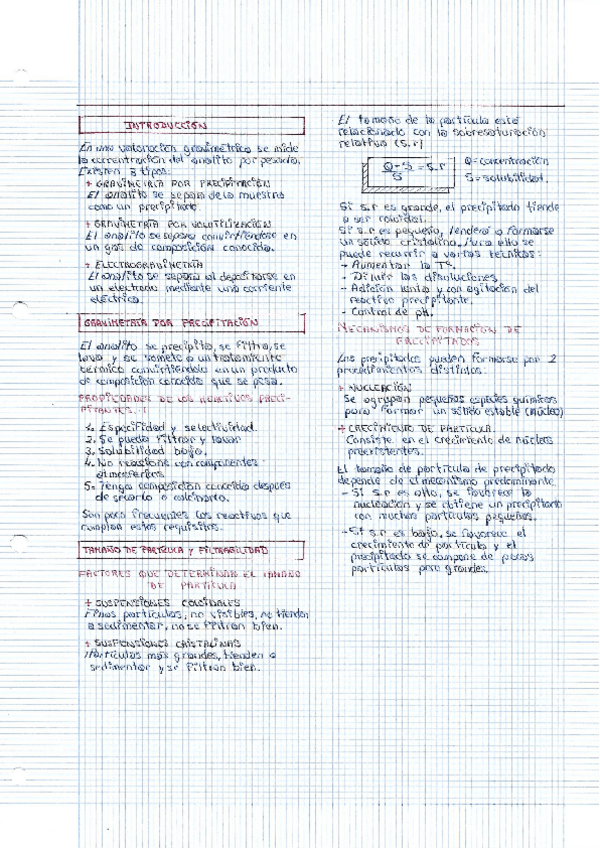 INTRODUCCIÓN
En una valoración gravimétrica se mide
la concentración del analito por pesada.
Existen 3 tipos:
+ GRAVIMETRÍA POR PRECIPITACIÓN
El analito se separa de la muestra
como un precipitado
+ GRAVIMETRÍA POR VOLATILIZACIÓN
El analito se separa convirtiéndose en
un gas de composición conocida.
+ ELECTROGRAVIMETRÍA
El analito se separa al depositarse en
un electrodo mediante una corriente
eléctrica.
GRAVIMETRÍA POR PRECIPITACIÓN
El analito se precipita, se filtra, se
lava y se somete a un tratamiento
térmico convirtiéndolo en un producto
de composición conocida que se pesa.
PROPIEDADES DE LOS REACTIVOS PRECI-
PITANTES:
1. Especificidad y selectividad.
2. Se pueda filtrar y lavar
3. Solubilidad baja.
4. No reaccione con componentes
atmosféricos
5. Tenga composición conocida después
de secarlo o calcinarlo.
Son poco frecuentes los reactivos que
cumplan estos requisitos.
TAMAÑO DE PARTÍCULA Y FILTRABILIDAD
FACTORES QUE DETERMINAN EL TAMAÑO
DE PARTÍCULA
+ SUSPENSIONES COLOIDALES
Finas partículas, no visibles, no tienden
a sedimentar, no se filtran bien.
+ SUSPENSIONES CRISTALINAS
Partículas más grandes, tienden a
sedimentar y se filtran bien.
El tamaño de la partícula está
relacionado con la sobresaturación
relativa (S.r)
Q-S/S = S.r
Q=concentración
S=solubilidad.
Si s.r es grande, el precipitado tiende
a ser coloidal.
Si s.r es pequeño, tenderá a formarse
un sólido cristalino. Para ello se
puede recurrir a varias técnicas:
- Aumentar la Tª.
- Diluir las disoluciones
- Adición lenta y con agitación del
reactivo precipitante.
- Control de pH.
MECANISMOS DE FORMACIÓN DE
PRECIPITADOS
Los precipitados pueden formarse por 2
procedimientos distintos:
+ NUCLEACIÓN
Se agrupan pequeñas especies químicas
para formar un sólido estable (núcleo)
+ CRECIMIENTO DE PARTÍCULA.
Consiste en el crecimiento de núcleos
preexistentes.
El tamaño de partícula de precipitado
depende de el mecanismo predominante.
- Si s.r es alto, se favorece la
nucleación y se obtiene un precipitado
con muchas partículas pequeñas.
- Si s.r es bajo, se favorece el
crecimiento de partícula y el
precipitado se compone de pocas
partículas pero grandes.